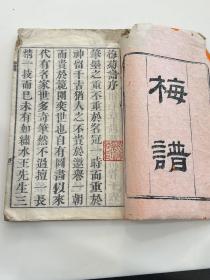 梅菊譜序
華墨之重不重於名冠一時而重於
神留千古猶人之不貴於邀譽一朝
而貴於範圍奕世也自有圖書以來
代有名家世多奇筆然不過擅一長
精一技而已未有如繡水王先生三
梅譜